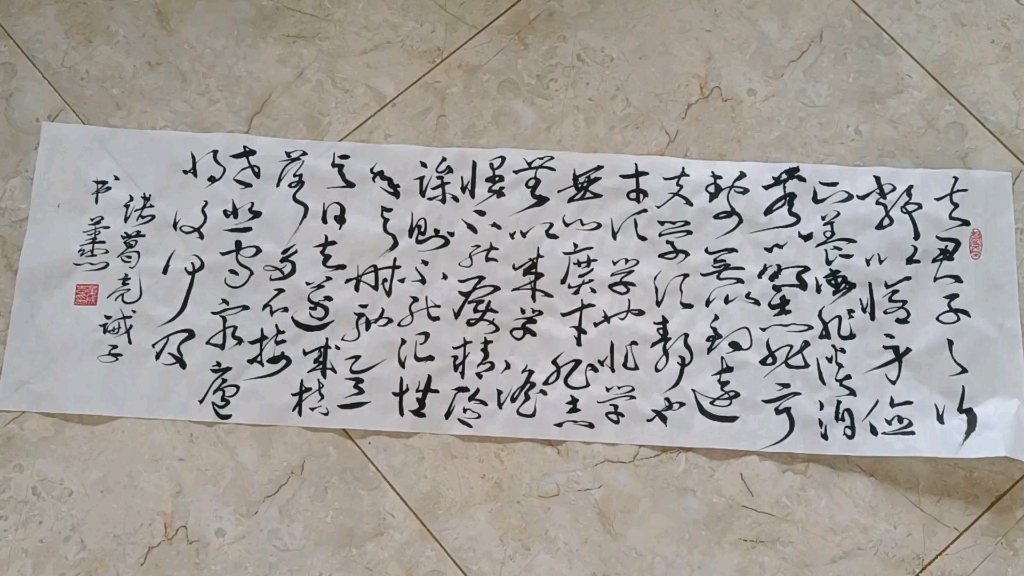 夫君子之行
静以修身俭
以养德非淡泊
无以明志非宁
静无以致远
夫学须静也
才须学也非学
無以廣才非志
無以成学淫
慢不能励精险
躁则不能治性
年与时驰意
与日去遂成枯
落多不接
世悲守穷廬
将復何及
诸葛亮诫子
书